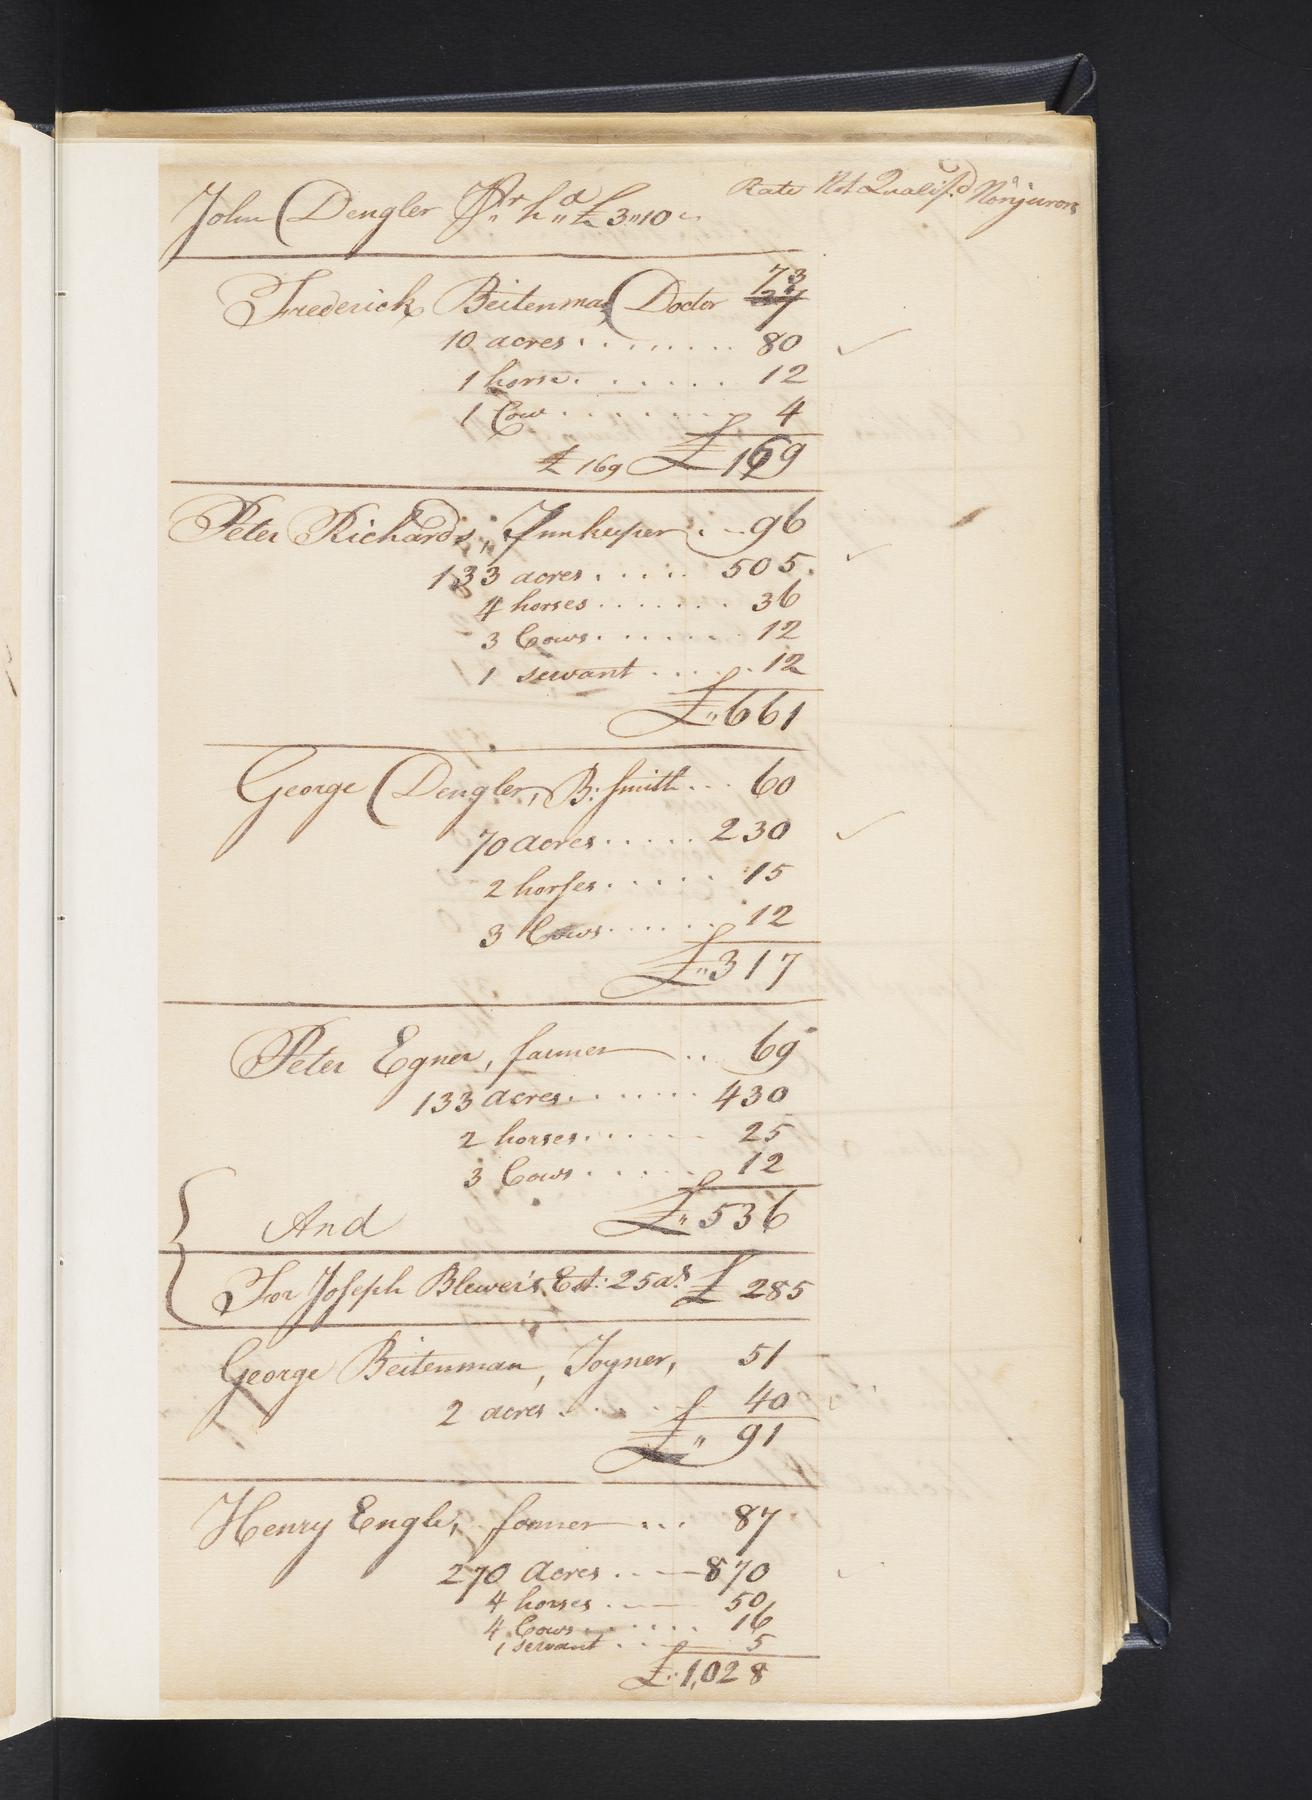 Rate Not Qualif.d Nonjurors
John Dengler Jr. h.d £3"10"
Frederick Beitenman Doctor 73
27
10 acres ........ 80
1 horse ...... 12
1 Cow ...... 4
£169 £169
Peter Richards, Innkeeper .. 96
133 acres ..... 505.
4 horses ....... 36
3 Cows ...... 12
1 servant ..... 12
£"661
George Dengler, B: Smith ... 60
70 acres ..... 230
2 horses ..... 15
3 Cows ...... 12
£"317
Peter Egner, farmer .. 69
133 acres ....... 430
2 horses ..... 25
3 Cows ..... 12
£"536
And
For Joseph Blewer's Est: 25 as. £ 285
George Beitenman, Joyner, 51
2 acres .... 40
£" 91
Henry Engle, farmer ... 87
270 Acres .. 870
4 horses .. 50
4 Cows ..... 16
1 servant .. 5
£"1,028